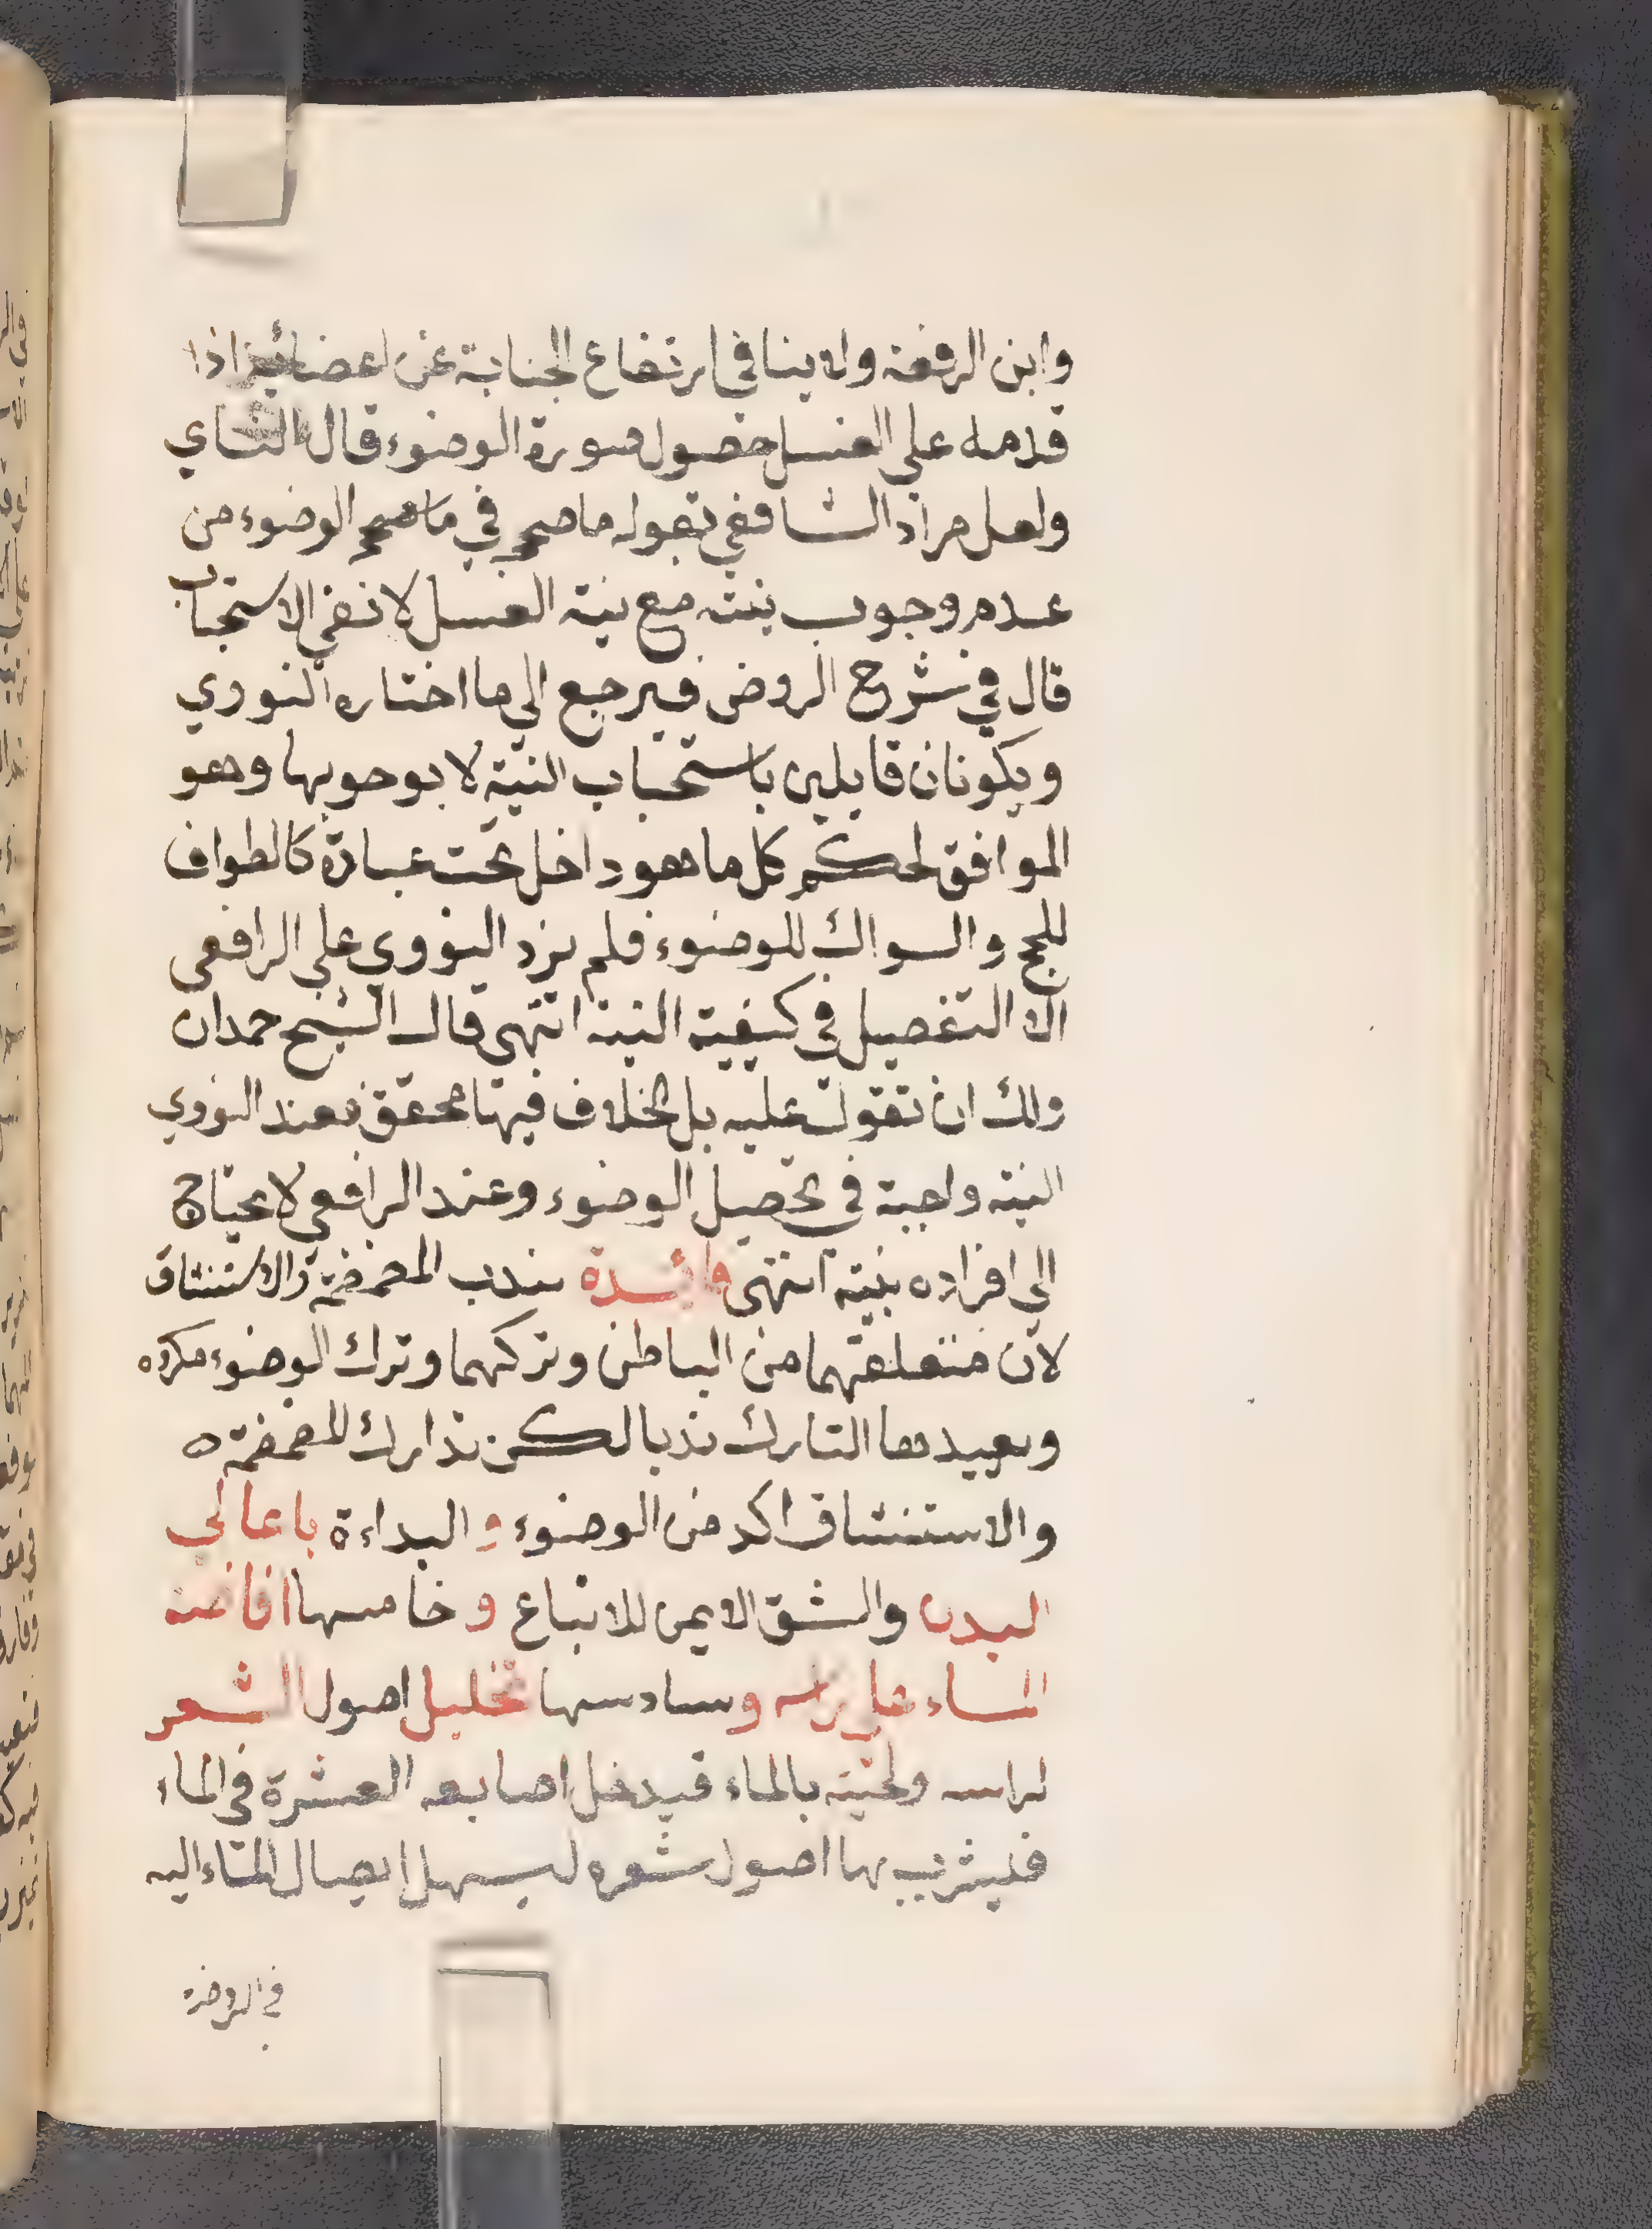 وابن الرفعة ولا ينافي ارتفاع الجنابة عن اعضائه اذا
قدمه علي الغسل حصول صورة الوضوء قال النشاي
ولعل مراد الشافعي بقوله ما صح في ما صح الوضوء من
عدم وجوب نيته مع نية الغسل لا نفي الاستحباب
قال في شرح الروض فيرجع الي ما اختاره النووي
ويكونان قايلين باستحباب النية لا بوجوبها وهو
الموافق لحكم كل ما هو داخل تحت عبادة كالطواف
للحج والسواك للوضوء فلم يزد النووي علي الرافعي
الا التفصيل في كيفية النية انتهي قال الشيخ حمدان
ولك ان تقول عليه بل الخلاف فيها محقق فعند النووي
النية واجبة في تحصيل الوضوء وعند الرافعي لا يحتاج
الي افراده بنية انتهي فائدة تندب المضمضة والاستنشاق
لان متعلقهما من الباطن وتركهما وترك الوضوء مكروه
ويعيدها التارك ندبا لكن تدارك المضمضة ه
والاستنشاق اكد من الوضوء و البداءة باعالي
البدن والشق الايمن للاتباع و خامسها افاضة
الماء علي راسه وسادسها تخليل اصول الشعر
لراسه ولحيته بالماء فيدخل اصابعه العشرة في الماء
فيشرب بها اصول شعره ليسهل ايصال الماء اليه
في الروضة